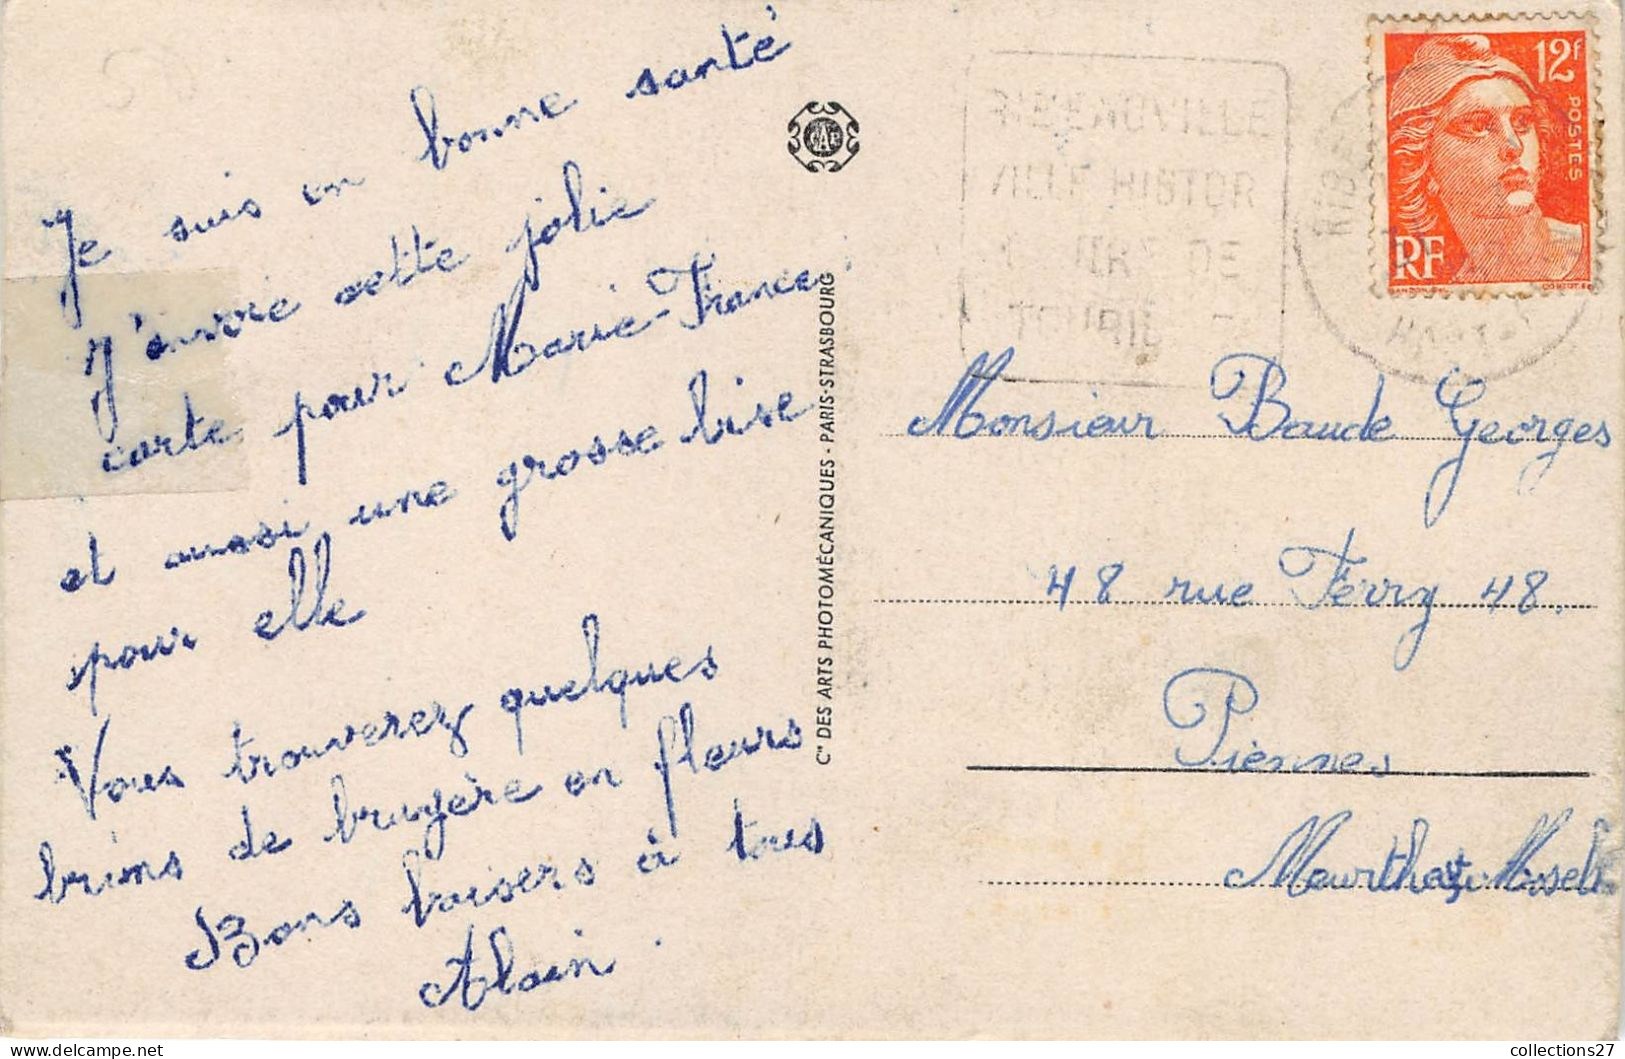 Je suis en bonne santé
J'envoie cette jolie
carte pour Marie-France
et aussi une grosse bise
pour elle
Vous trouverez quelques
brins de bruyère en fleurs
Bons baisers à tous
Alain.
CAP
Cie DES ARTS PHOTOMÉCANIQUES - PARIS-STRASBOURG
RIBEAUVILLE
VILLE HISTOR
DE
12f
POSTES
RF
GANDON
Monsieur Baude Georges
48 rue Ferry 48.
Piennes
Meurthe et Moselle
collections27